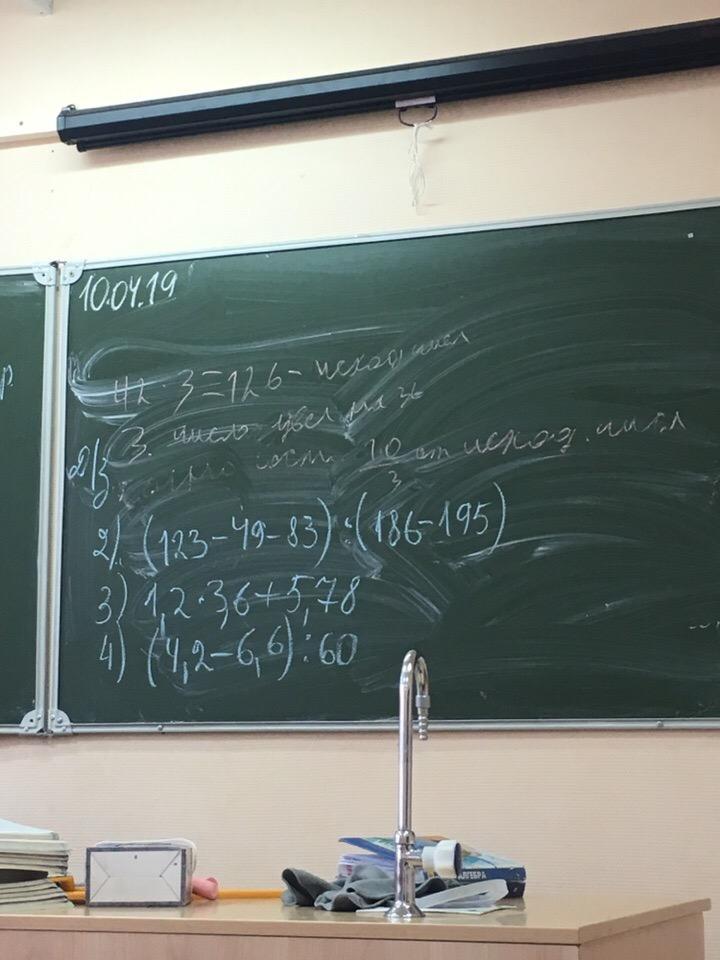 10.04.19
42 · 3 = 126 - исход. числ
3. число увел на 36
Д/з
10/3 от исход. числ
2). (123-49-83)·(186-195)
3) 1,2·3,6+5,78
4) (4,2-6,6):60
АЛГЕБРА